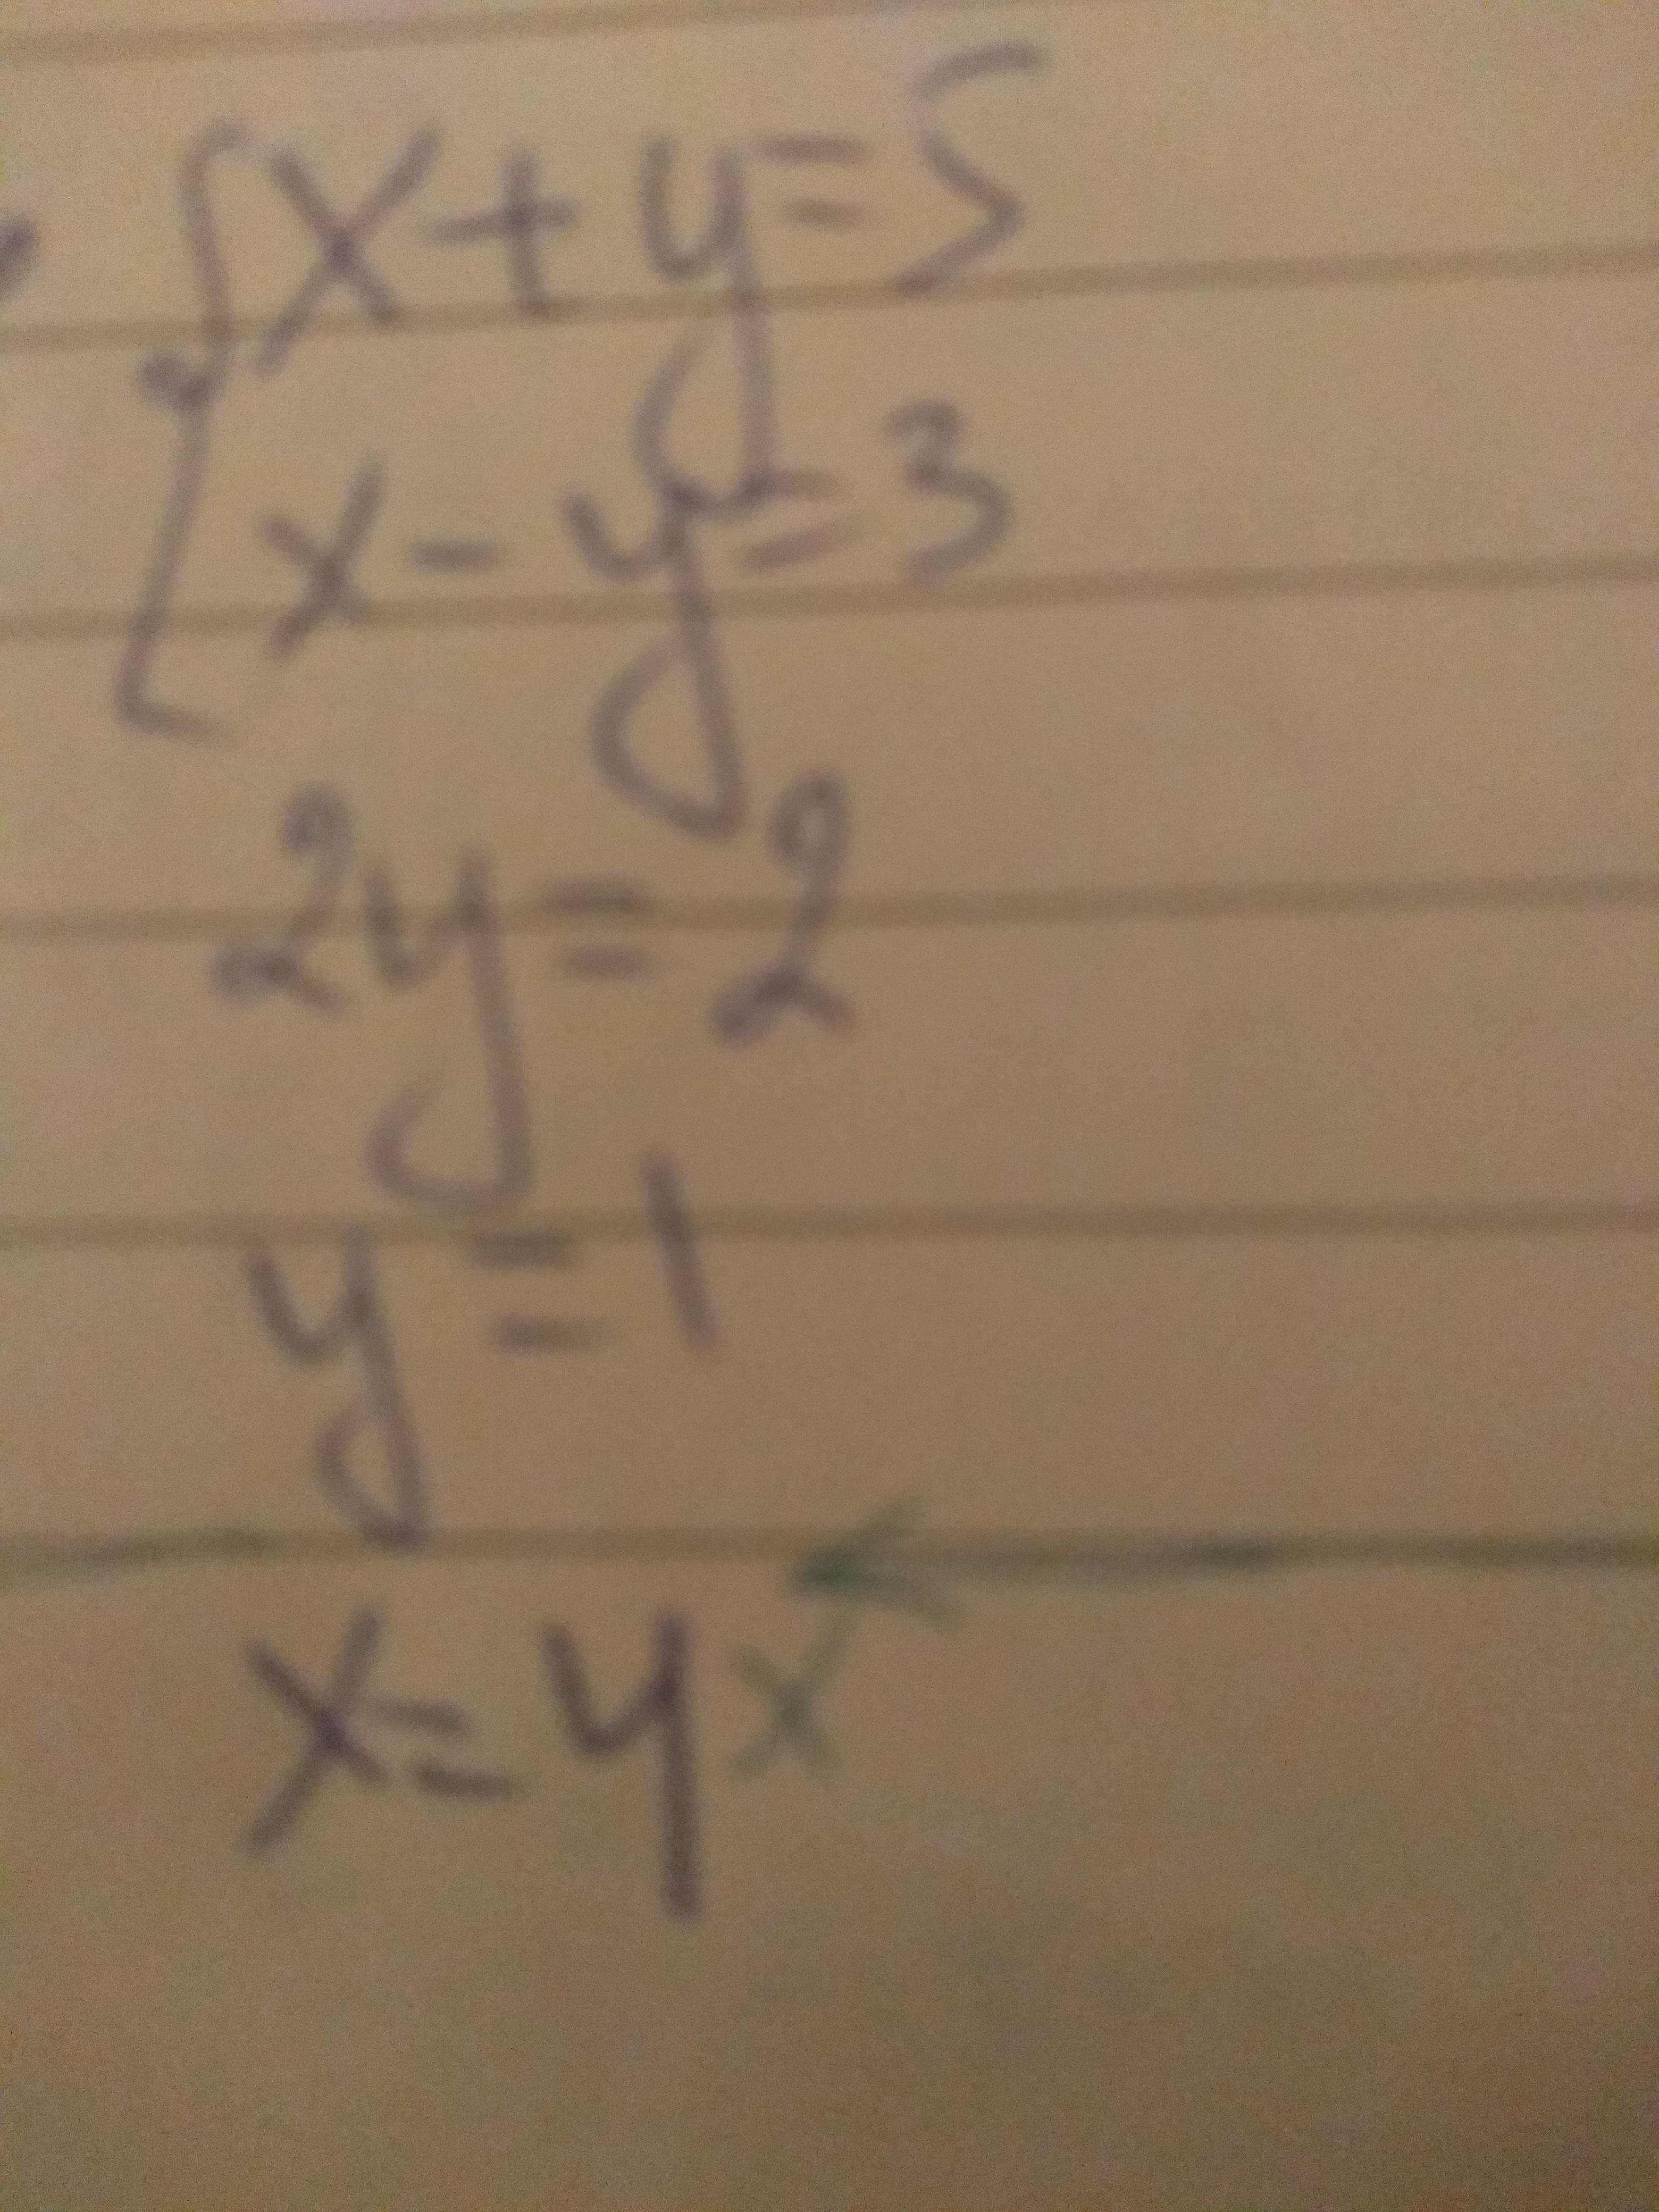 x+y=5
x-y=3
2y=2
y=1
x=4 x